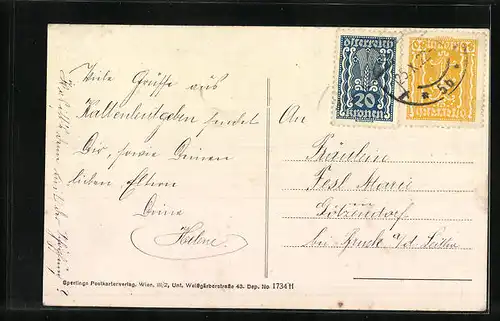 Viele Grüsse aus
Kaltenleutgeben sendet
Dir, sowie Deinen
lieben Eltern
Deine
Helene
An
Fräulein
Resl Marie
Götzendorf
bei Bruck a/d. Leitha
Österreich
20
Kronen
5b
Sperlings Postkartenverlag, Wien, III/2, Unt. Weißgärberstraße 43. Dep. No 1734 H